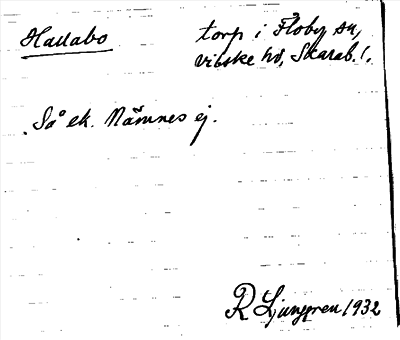 Hallabo
torp i Floby sn,
Vilske hd, Skarab. l.
Så ek. Nämnes ej.
R Ljunggren 1932